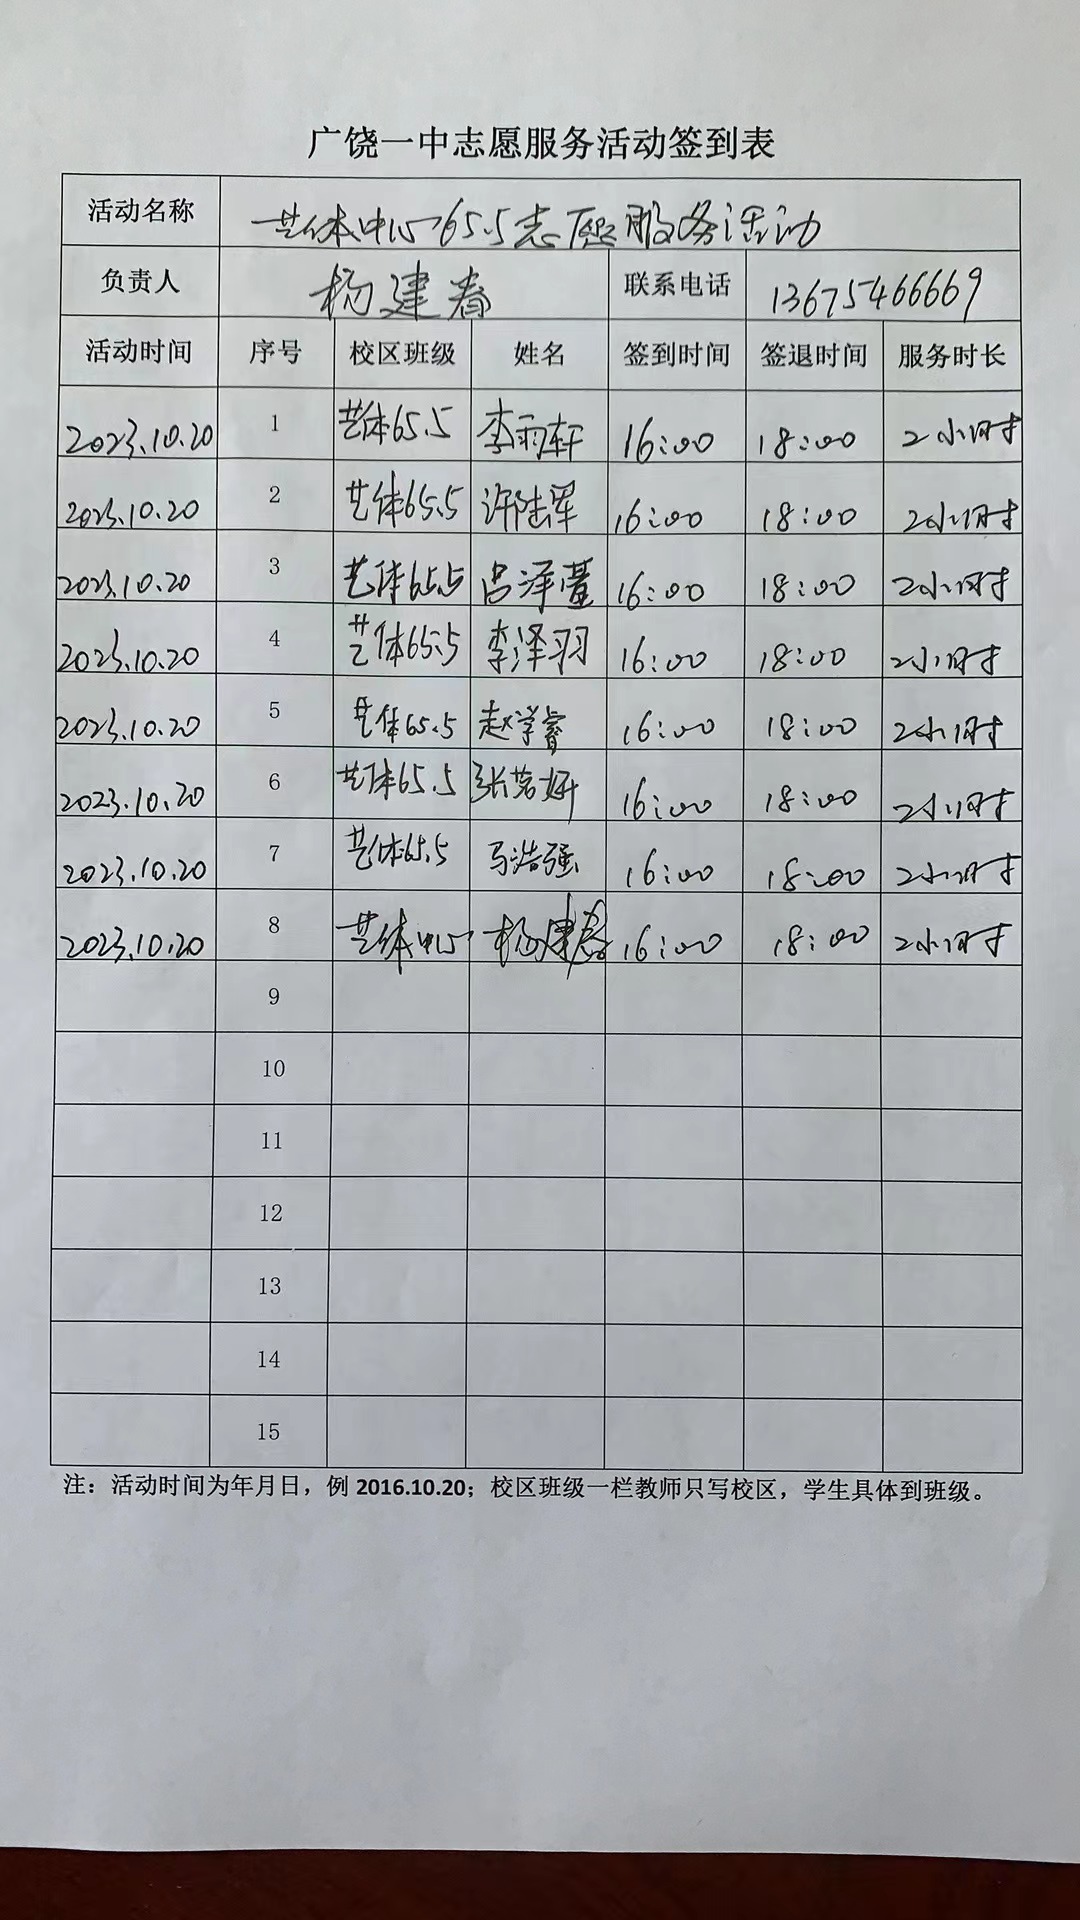 广饶一中志愿服务活动签到表
活动名称 艺体中心65.5志愿服务活动
负责人 杨建春 联系电话 13675466669
活动时间 序号 校区班级 姓名 签到时间 签退时间 服务时长
2023.10.20 1 艺体65.5 李雨轩 16:00 18:00 2小时
2023.10.20 2 艺体65.5 许陆军 16:00 18:00 2小时
2023.10.20 3 艺体65.5 吕泽萱 16:00 18:00 2小时
2023.10.20 4 艺体65.5 李泽羽 16:00 18:00 2小时
2023.10.20 5 艺体65.5 赵学睿 16:00 18:00 2小时
2023.10.20 6 艺体65.5 张茗妍 16:00 18:00 2小时
2023.10.20 7 艺体65.5 马浩强 16:00 18:00 2小时
2023.10.20 8 艺体中心 杨建春 16:00 18:00 2小时
9
10
11
12
13
14
15
注：活动时间为年月日，例 2016.10.20；校区班级一栏教师只写校区，学生具体到班级。